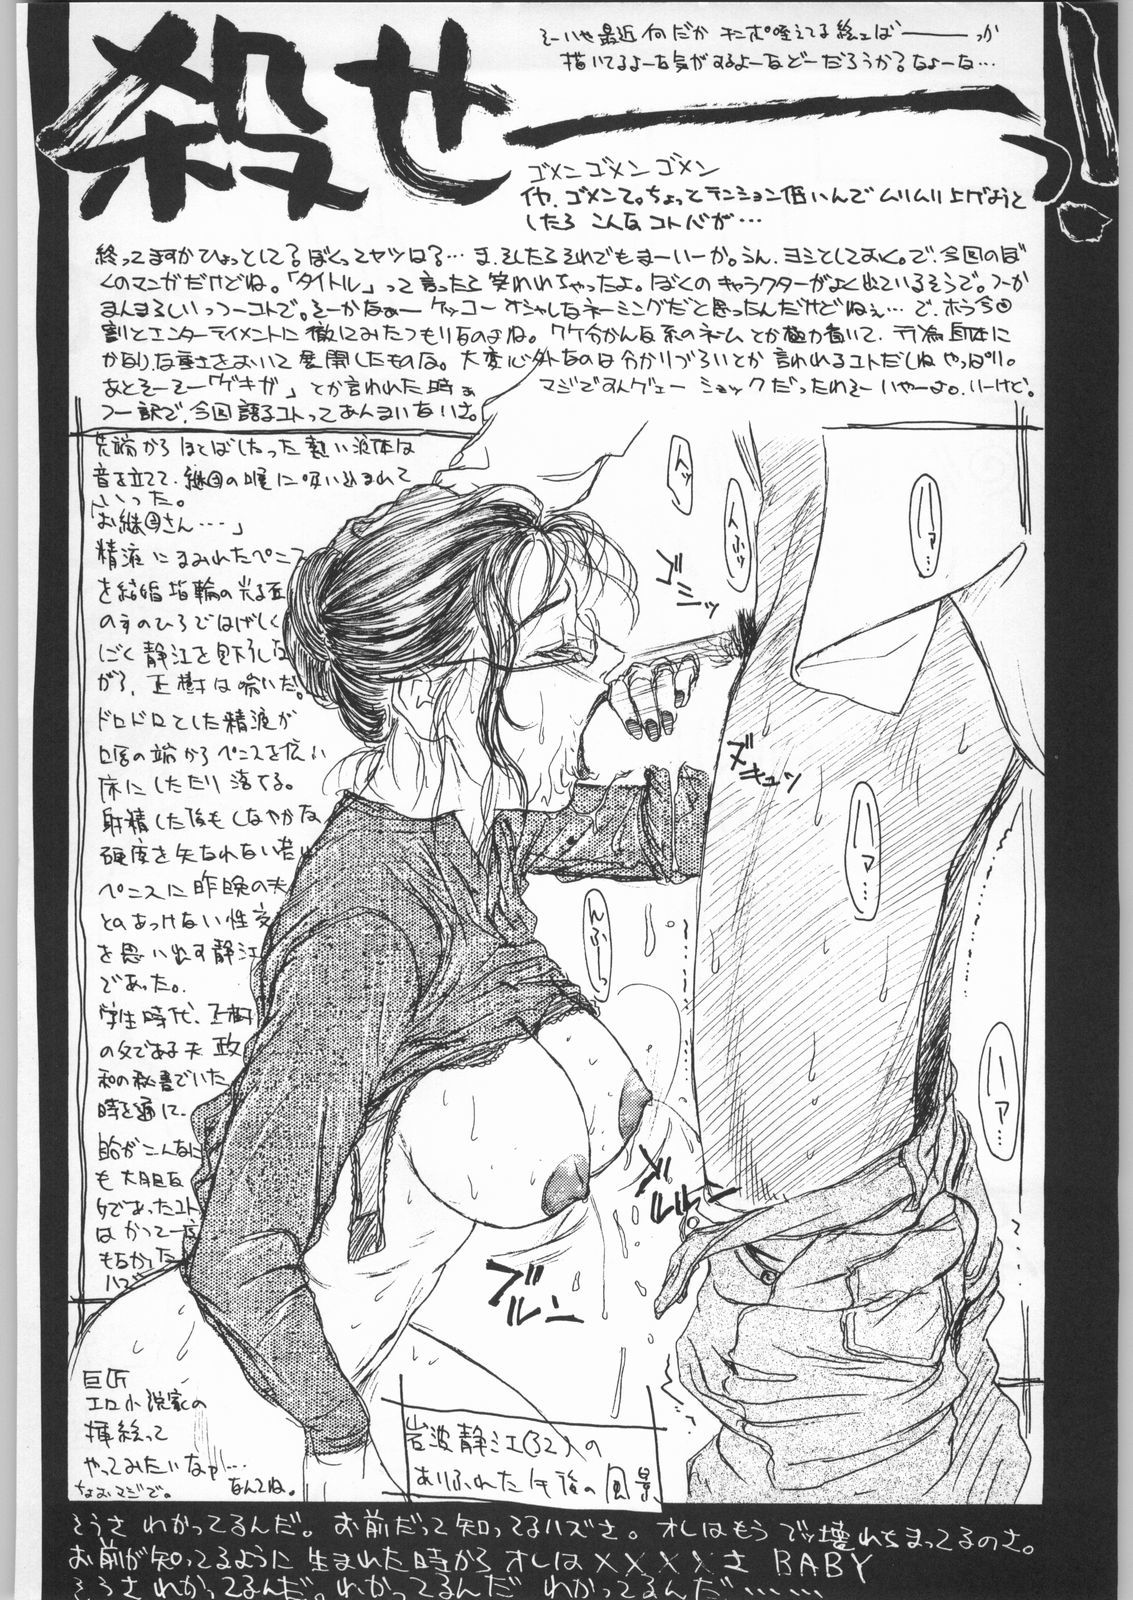 殺せーーっ!!
そーいや最近何だか チ○ポ咥えてる絵ェばーーーっか
描いてるよーな気がするよーなどーだろうか?なよーな…
ゴメンゴメンゴメン
イヤ、ゴメンて。ちょっとテンション低いんでムリムリ上げようと
したら こんなコトバが…
終ってますかひょっとして?ぼくってヤツは?…ま、そしたらそれでもまーいーか。うん、ヨシとしておく。で、今回のぼ
くのマンガだけどね。「タイトル」って言ったら笑われちゃったよ。ぼくのキャラクターがよく出ているそうで。つーか
まんまるしいっつーコトで。そーかなぁー ケッコーオシャレなネーミングだと思ったんだけどねぇ…で、ホラ今回
割とエンターテイメントに徹してみたつもりなのよね。ワケ分かんな系のネームとか極力省いて、行為自体に
かなりな重きをおいて展開したものな。大変心外なのは分かりづらいとか言われるコトだしねやっぱり。
あとそーそー「ゲキガ」とか言われた時ぁ マジですんげェー ショックだったわそーいやーよ。いーけど。
つー訳で、今回語るコトってあんまいないさ。
先端からほとばしった熱い液体は
音を立てて、継母の喉に吸い込まれて
いった。
「お継母さん…」
精液にまみれたペニス
を結婚指輪の光る
のてのひらではげしく
しごく静江を見下しな
がら、正樹は喘いだ。
ドロドロとした精液が
口唇の端からペニスを伝い
床にしたたり落てる。
射精した後もしなやかな
硬度を失なわない若い
ペニスに昨晩の夫
とのあっけない性交
を思い出す静江
であった。
学生時代、正樹
の父である夫 政
和の秘書でいた
時を通して、
自分がこんなに
も大胆な
であったコト
はかつて一度
もなかった
ハズ
んッ
んぶッ
ハァ…
ゲシッ
ズキュッ
ハァ…
んぶーっ
ハァ…
ブルルン
ブルン
巨匠
エロ小説家の
挿絵って
やってみたいなァ…
なんてね。
なおマジで。
岩波静江(32)の
ありふれた午後の風景
そうさ わかってるんだ。お前だって知ってるハズさ。オレはもう ブッ壊れちまってるのさ。
お前が知ってるように 生まれた時から オレは××××さ BABY
そうさわかってるんだ。わかってるんだ わかってるんだ……